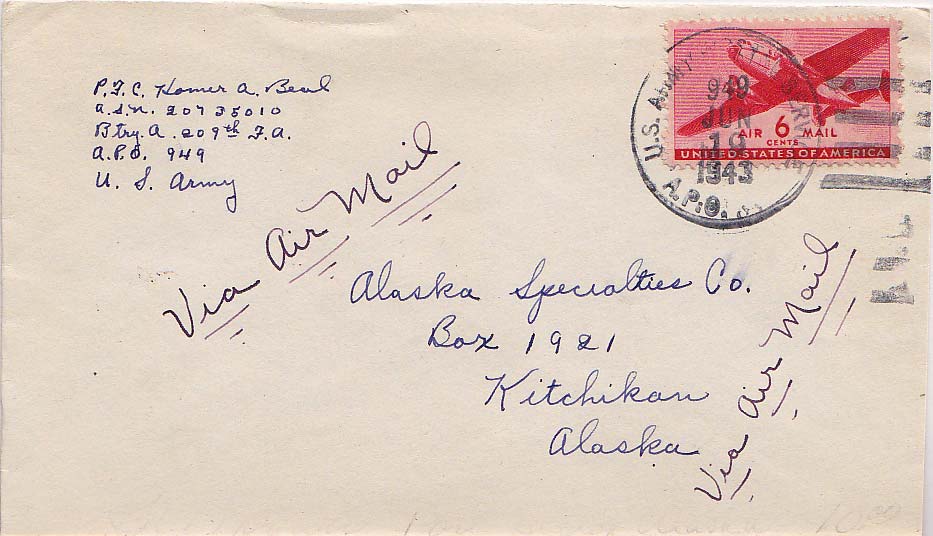 P.F.C. Homer A. Beal
A.S.N. 20735010
Btry. A. 209th F.A.
A.P.O. 949
U. S. Army
Via Air Mail
U.S. ARMY POSTAL SERVICE
949
JUN
19
1943
A.P.O.
AIR 6 MAIL
CENTS
UNITED STATES OF AMERICA
Alaska Specialties Co.
Box 1921
Kitchikan
Alaska
Via Air Mail